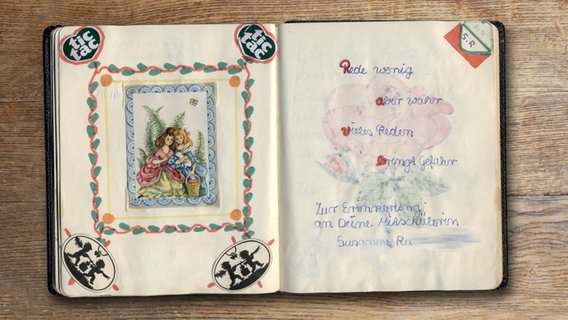 tic
tac
tic
tac
S.R
Rede wenig
aber wahr
vieles Reden
bringt Gefahr
Zur Erinnerung
an Deine Mitschülerin
Susanne Ru